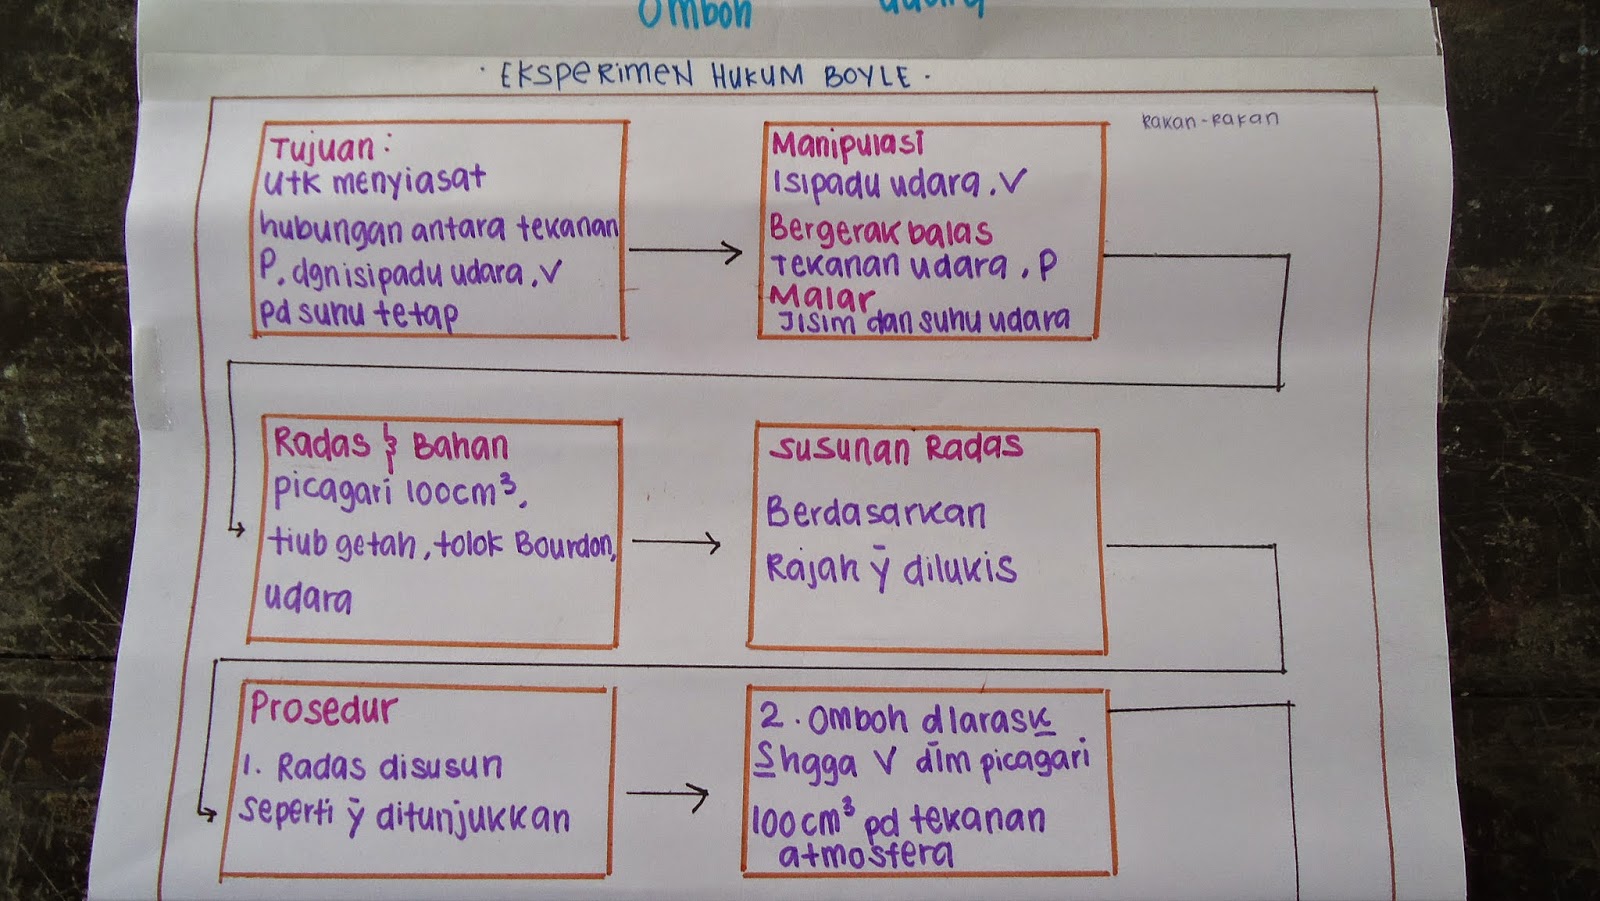 Omboh udara
· EKSPERIMEN HUKUM BOYLE ·
RAKAN-RAKAN
Tujuan :
Utk menyiasat
hubungan antara tekanan
P, dgn isipadu udara, V
pd suhu tetap
Manipulasi
Isipadu udara, V
Bergerak balas
Tekanan udara, P
Malar
Jisim dan suhu udara
Radas & Bahan
picagari 100cm³,
tiub getah, tolok Bourdon,
udara
Susunan Radas
Berdasarkan
Rajah ȳ dilukis
Prosedur
1. Radas disusun
seperti ȳ ditunjukkan
2. Omboh dlarask
Shgga V dlm picagari
100cm³ pd tekanan
atmosfera